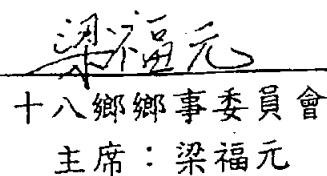 梁福元
十八鄉鄉事委員會
主席：梁福元